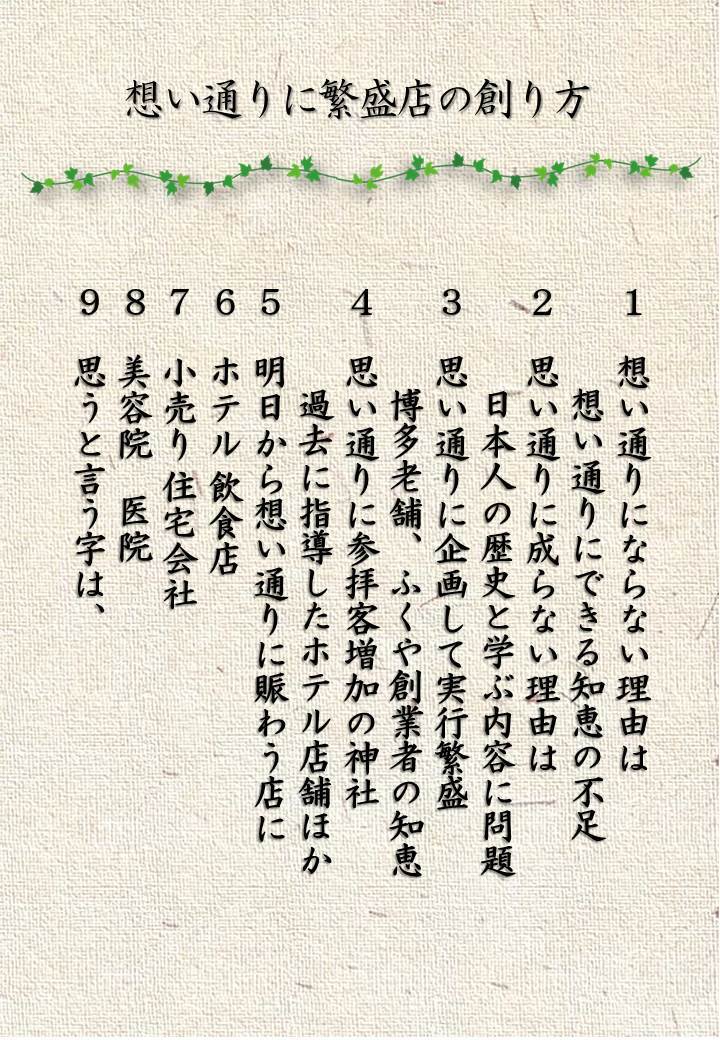 想い通りに繁盛店の創り方
1 想い通りにならない理由は
想い通りにできる知恵の不足
2 思い通りに成らない理由は
日本人の歴史と学ぶ内容に問題
3 思い通りに企画して実行繁盛
博多老舗、ふくや創業者の知恵
4 思い通りに参拝客増加の神社
過去に指導したホテル店舗ほか
5 明日から想い通りに賑わう店に
6 ホテル 飲食店
7 小売り 住宅会社
8 美容院 医院
9 思うと言う字は、